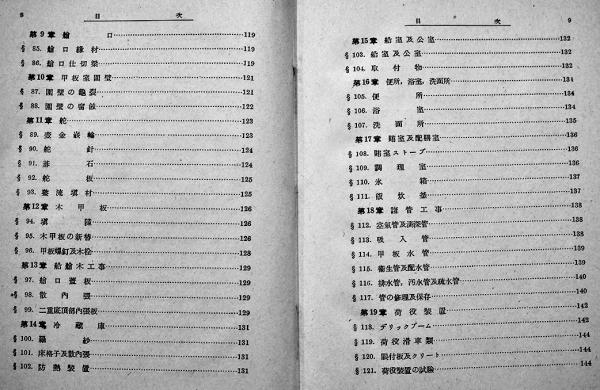 8 目次
第9章 艙口 119
§ 85. 艙口縁材 119
§ 86. 艙口仕切梁 119
第10章 甲板室囲壁 121
§ 87. 囲壁の亀裂 121
§ 88. 囲壁の腐蝕 122
第11章 舵 123
§ 89. 壺金嵌輪 123
§ 90. 舵針 124
§ 91. 石 124
§ 92. 舵板 125
§ 93. 整流填材 125
第12章 木甲板 126
§ 94. 填隙 126
§ 95. 木甲板の新替 126
§ 96. 甲板螺釘及木栓 128
第13章 船艙木工事 129
§ 97. 艙口蓋板 129
§ 98. 散内張 129
§ 99. 二重底頂部内張板 129
第14章 冷蔵庫 131
§ 100. 羅紗 131
§ 101. 床格子及散内張 131
§ 102. 防熱装置 131
目次 9
第15章 船室及公室 132
§ 103. 船室及公室 132
§ 104. 取付物 132
第16章 便所，浴室，洗面所 134
§ 105. 便所 134
§ 106. 浴室 134
§ 107. 洗面所 135
第17章 賄室及配膳室 136
§ 108. 賄室ストーブ 136
§ 109. 調理室 136
§ 110. 氷箱 137
§ 111. 飯炊釜 137
第18章 諸管工事 138
§ 112. 空気管及測深管 138
§ 113. 吸入管 138
§ 114. 甲板水管 139
§ 115. 衛生管及配水管 139
§ 116. 排水管，汚水管及疏水管 140
§ 117. 管の修理及保存 140
第19章 荷役装置 142
§ 118. デリックブーム 142
§ 119. 荷役滑車類 144
§ 120. 眼付板及クリート 144
§ 121. 荷役装置の試験 144